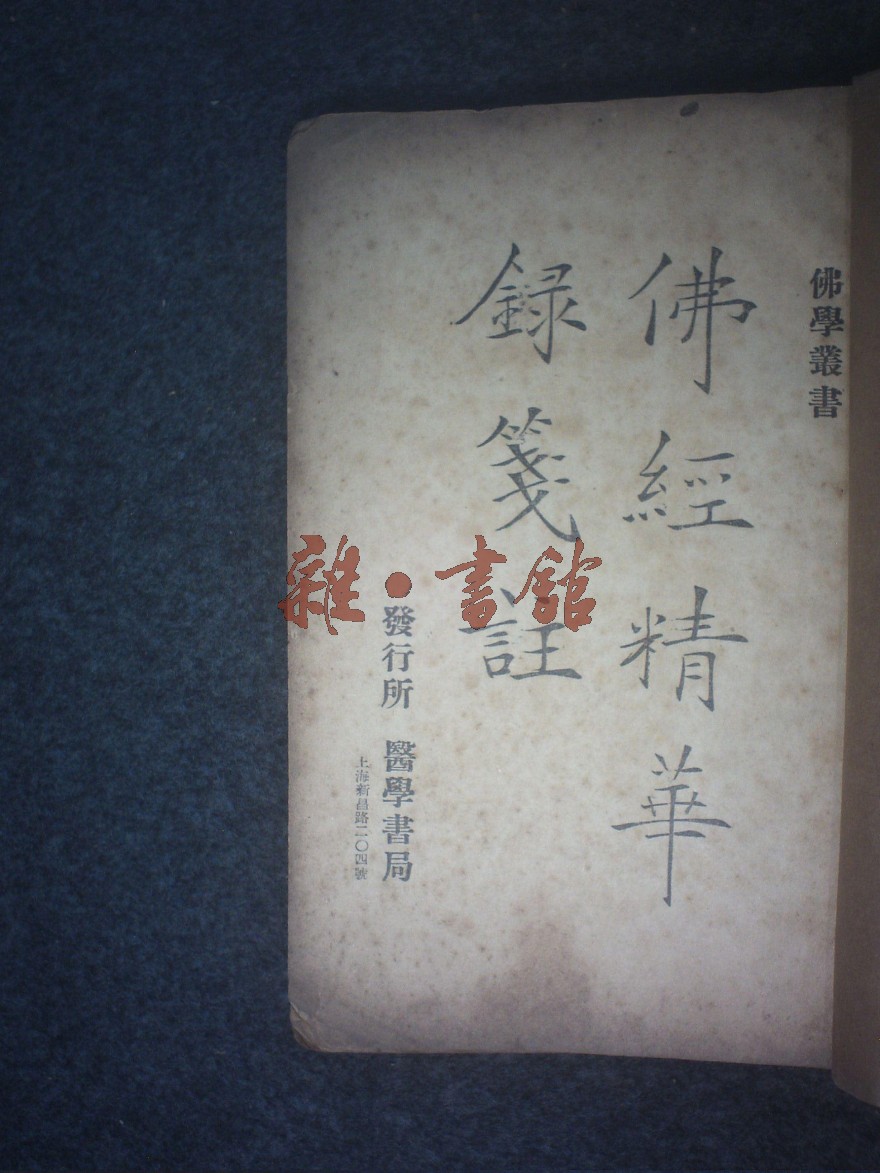 佛學叢書
佛經精華
録箋註
發行所 醫學書局
上海新昌路二〇四號
雜·書館